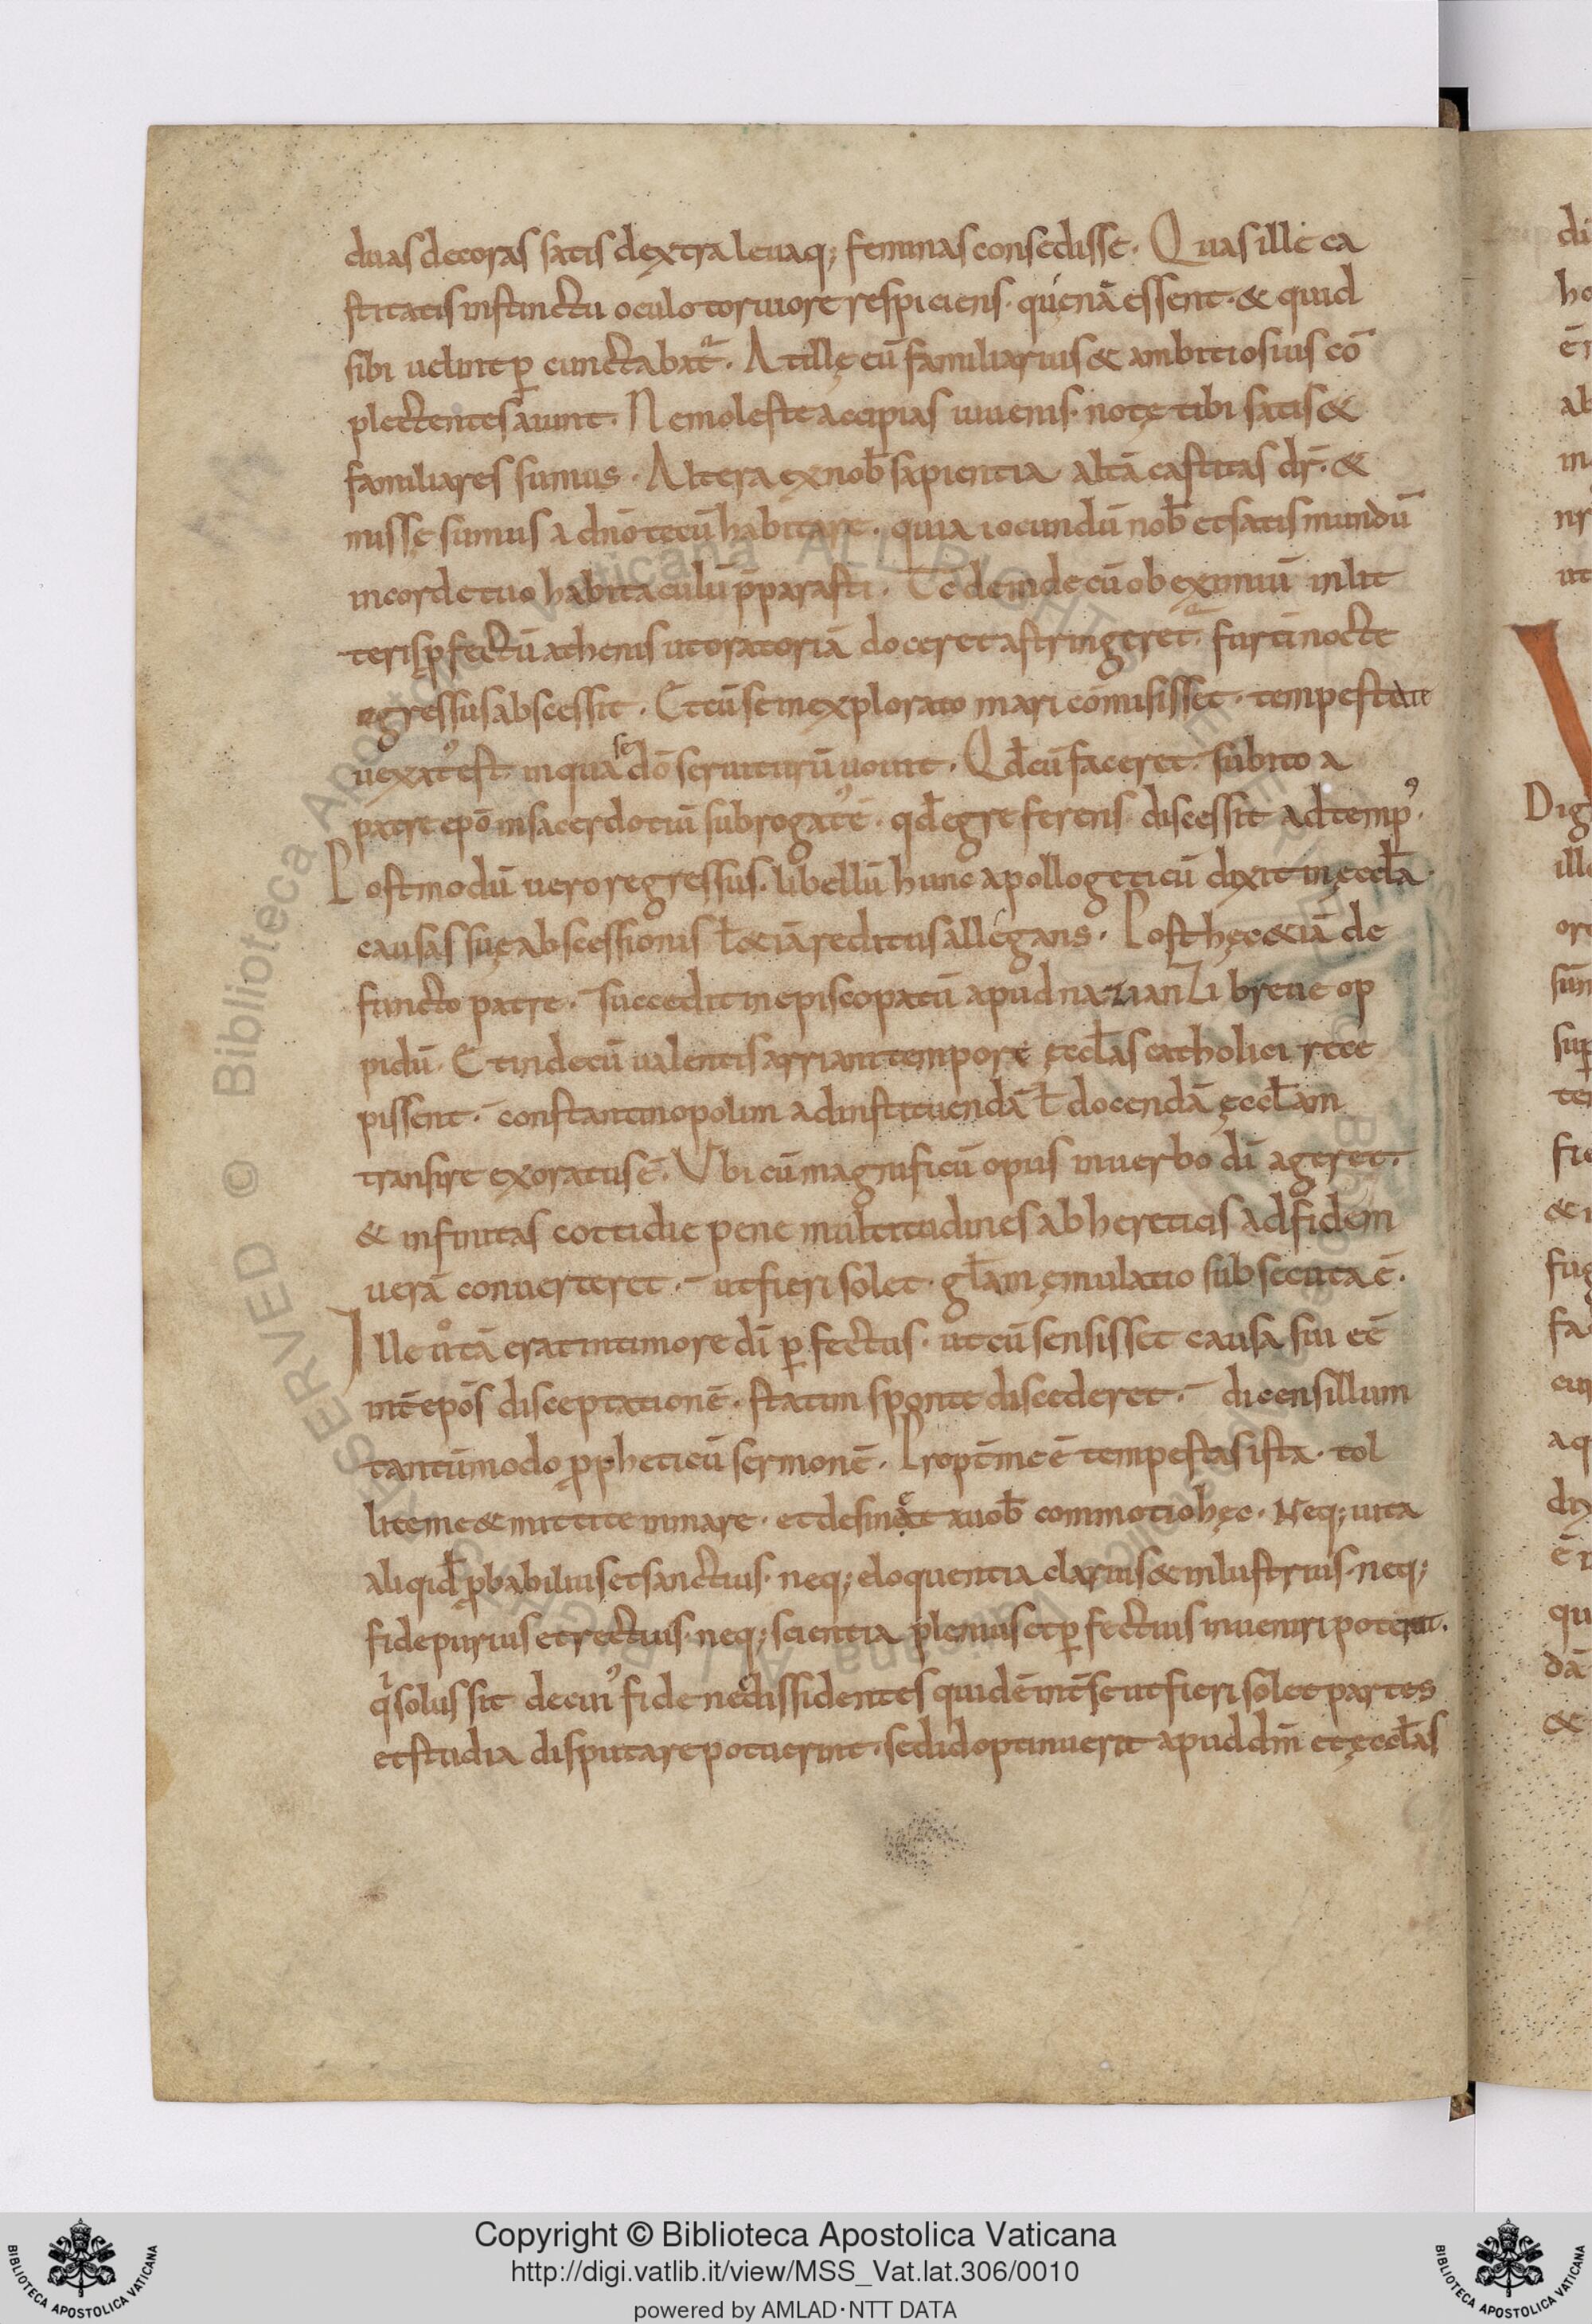 duas decoras satis dextra levaq; feminas consedisse. Quas ille ca
stitatis instinctu oculo torviore respiciens. quęnā essent. & quid
sibi velint ꝑcunctabat᷑. At illę cū familiarius & ambitiosius cō
plectentes aiunt. Ne moleste accipias iuvenis. notę tibi satis &
familiares sumus. Altera ex nob̄ sapientia altā castitas dr̄. &
missę sumus a dn̄o tecū habitare. quia iocundū nob̄ et satis mundū
in corde tuo habitaculū p̄parasti. Te deinde cū ob eximiū in lit
teris ꝑfectū athenis ut oratoriā doceret astringeret. furtī nocte
egressus abscessit. Et cū se inexplorato mari cōmisisset. tempestate
vexatꝰ est. in qua se dō serviturū vovit. Qd̄ cū faceret. subito a
patre ep̄o in sacerdotiū subrogatꝰ ē. qd̄ egre ferens discessit ad tempꝰ.
Postmodū vero regressus. libellū hunc apollogeticū dixit in ęccl̄a
causas suę abscessionis ł &iā reditus allegans. Post hęc &iā de
functo patre. succedit in episcopatū apud nazianzi breve op
pidū. Et inde cū valentis arriani tempore ęccl̄as catholici rece
pissent. constantinopolim ad instituendā ł docendā ęccl̄am
transire exoratus ē. Ubi cū magnificū opus in verbo dī ageret.
& infinitas cottidie pene multitudines ab hereticis ad fidem
verā converteret. ut fieri solet. gl̄am ęmulatio subsecuta ē.
Ille vͦ tā erat in timore dī ꝑfectus. ut cū sensisset causa sui eē
int̄ ep̄os disceptationē. statim sponte discederet. dicens illum
tantūmodo ꝓpheticū sermonē. Propt̄ me ē tempestas ista. tol
lite me & mittite in mare. et desinet a vob̄ commotio hęc. Neq; vita
aliqid ꝓbabilius et sanctius. neq; eloquentia clarius & inlustrius. neq;
fide purius et rectius. neq; scientia plenius et ꝑfectius inveniri poterit.
q̇ solus sit de cuiꝰ fide nec dissidentes quidē int̄ se ut fieri solet partes
et studia disputare potuerint. sed id optinuerit apud dm̄ et ęccl̄as
Copyright © Biblioteca Apostolica Vaticana
http://digi.vatlib.it/view/MSS_Vat.lat.306/0010
powered by AMLAD·NTT DATA
BIBLIOTECA APOSTOLICA VATICANA
BIBLIOTECA APOSTOLICA VATICANA